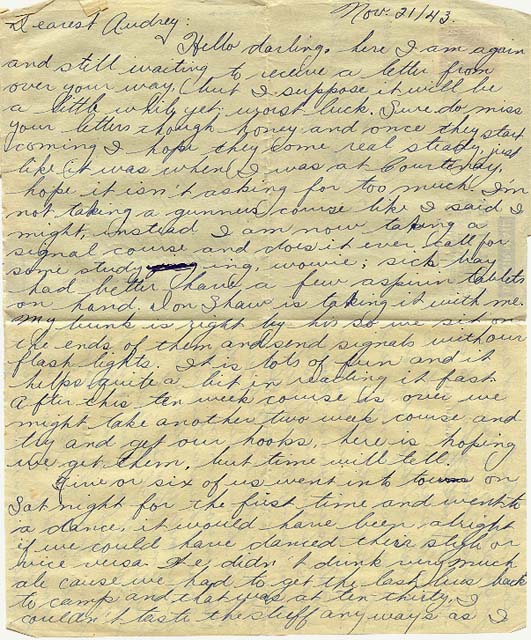 Nov. 21/43.
Dearest Audrey:
Hello darling, here I am again
and still waiting to receive a letter from
over your way, but I suppose it will be
a little while yet worst luck. Sure do miss
your letters though honey and once they start
coming I hope they come real steady, just
like it was when I was at Courtenay,
hope it isn't asking for too much. I'm
not taking a gunners course like I said I
might, instead I am now taking a
signal course and does it ever call for
some study ing, wowie; sick bay
had better have a few aspirin tablets
on hand. Don Shaw is taking it with me.
My bunk is right by his so we sit on
the ends of them and send signals with our
flash lights. It is lots of fun and it
helps quite a bit in reading it fast.
After this ten week course is over we
might take another two week course and
try and get our hooks, here is hoping
we get them, but time will tell.
Five or six of us went into town on
Sat night for the first time and went to
a dance, it would have been alright
if we could have danced their style or
vice versa. We didn't drink very much
ale cause we had to get the last bus back
to camp and that was at ten thirty, I
couldn't taste the stuff any ways as I